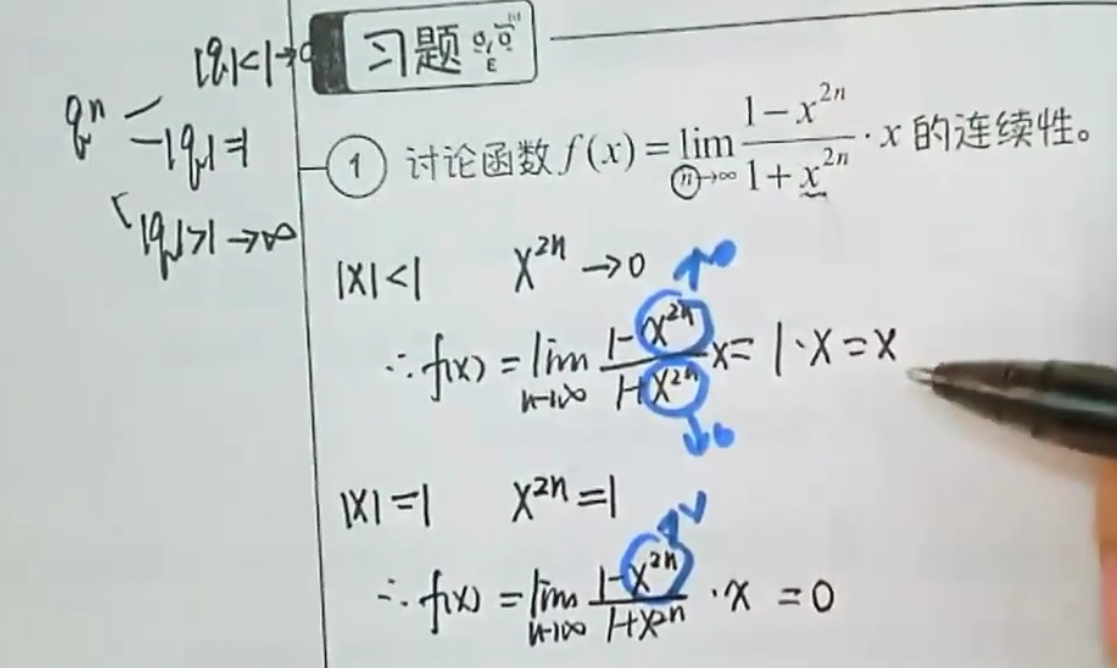 习题
|q|<1→0
qⁿ
|q|=1
|q|>1→∞
① 讨论函数 f(x)=lim n→∞ (1-x²ⁿ)/(1+x²ⁿ)·x 的连续性。
|x|<1 x²ⁿ→0
∴f(x)=lim n→∞ (1-x²ⁿ)/(1+x²ⁿ) x=1·x=x
|x|=1 x²ⁿ=1
∴f(x)=lim n→∞ (1-x²ⁿ)/(1+x²ⁿ)·x=0